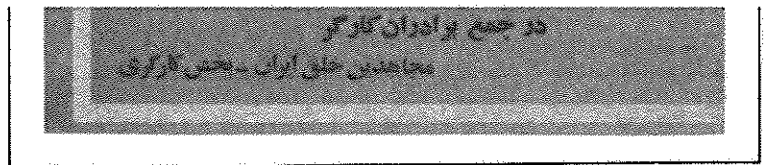 در جمع برادران کارگر
مجاهدین خلق ایران - بخش کارگری